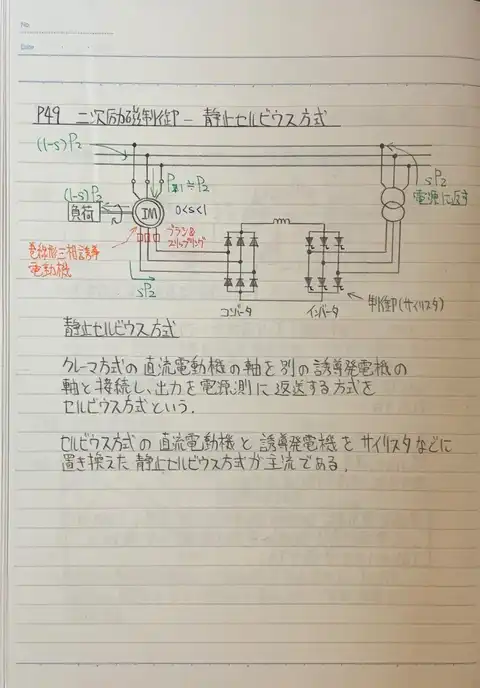 No.
Date
P49 二次励磁制御 - 静止セルビウス方式
(1-s)P2
P1≒P2
sP2
電源に返す
(1-s)P2
負荷
n
IM
0<s<1
ブラシ&
スリップリング
巻線形三相誘導
電動機
sP2
コンバータ
インバータ
制御(サイリスタ)
静止セルビウス方式
クレーマ方式の直流電動機の軸を別の誘導発電機の
軸と接続し、出力を電源測に返送する方式を
セルビウス方式という.
セルビウス方式の直流電動機と誘導発電機をサイリスタなどに
置き換えた静止セルビウス方式が主流である.